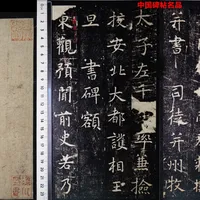 中国碑帖名品
并書 司徒并州牧
太子左千 率兼檢
挍安北大都護相王
旦 書碑額
東觀預聞前史若乃